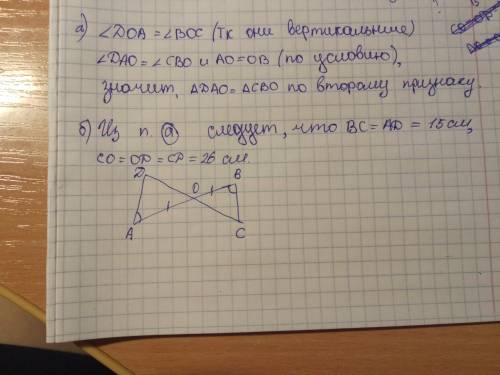 а) ∠DOA = ∠BOC (тк они вертикальние)
∠DAO = ∠CBO и AO=OB (по условию),
значит, ΔDAO = ΔCBO по второму признаку.
б) Из п. а следует, что BC = AD = 15 см,
CO = OD = CD = 26 см.
D B
O
A C